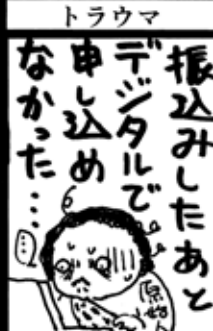 トラウマ
振込みしたあと
デジタルで
申し込め
なかった…
…